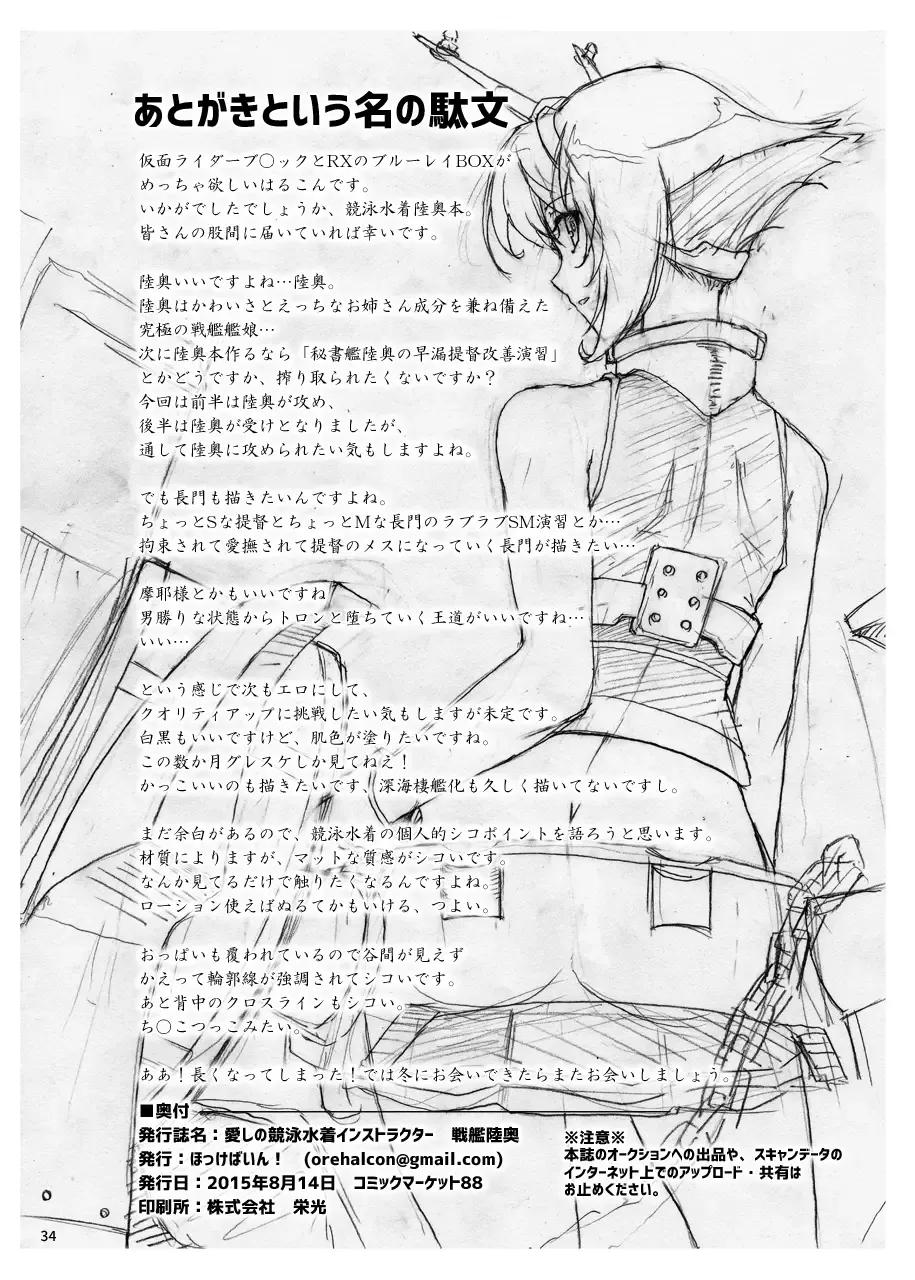 あとがきという名の駄文
仮面ライダーブ〇ックとRXのブルーレイBOXが
めっちゃ欲しいはるこんです。
いかがでしたでしょうか、競泳水着陸奥本。
皆さんの股間に届いていれば幸いです。
陸奥いいですよね…陸奥。
陸奥はかわいさとえっちなお姉さん成分を兼ね備えた
究極の戦艦艦娘…
次に陸奥本作るなら「秘書艦陸奥の早漏提督改善演習」
とかどうですか、搾り取られたくないですか？
今回は前半は陸奥が攻め、
後半は陸奥が受けとなりましたが、
通して陸奥に攻められたい気もしますよね。
でも長門も描きたいんですよね。
ちょっとSな提督とちょっとMな長門のラブラブSM演習とか…
拘束されて愛撫されて提督のメスになっていく長門が描きたい…
摩耶様とかもいいですね
男勝りな状態からトロンと堕ちていく王道がいいですね…
いい…
という感じで次もエロにして、
クオリティアップに挑戦したい気もしますが未定です。
白黒もいいですけど、肌色が塗りたいですね。
この数か月グレスケしか見てねえ！
かっこいいのも描きたいです、深海棲艦化も久しく描いてないですし。
まだ余白があるので、競泳水着の個人的シコポイントを語ろうと思います。
材質によりますが、マットな質感がシコいです。
なんか見てるだけで触りたくなるんですよね。
ローション使えばぬるてかもいける、つよい。
おっぱいも覆われているので谷間が見えず
かえって輪郭線が強調されてシコいです。
あと背中のクロスラインもシコい。
ち〇こつっこみたい。
ああ！長くなってしまった！では冬にお会いできたらまたお会いしましょう。
■奥付
発行誌名：愛しの競泳水着インストラクター　戦艦陸奥
発行：ほっけばいん！　(orehalcon@gmail.com)
発行日：2015年8月14日　コミックマーケット88
印刷所：株式会社　栄光
※注意※
本誌のオークションへの出品や、スキャンデータの
インターネット上でのアップロード・共有は
お止めください。
34